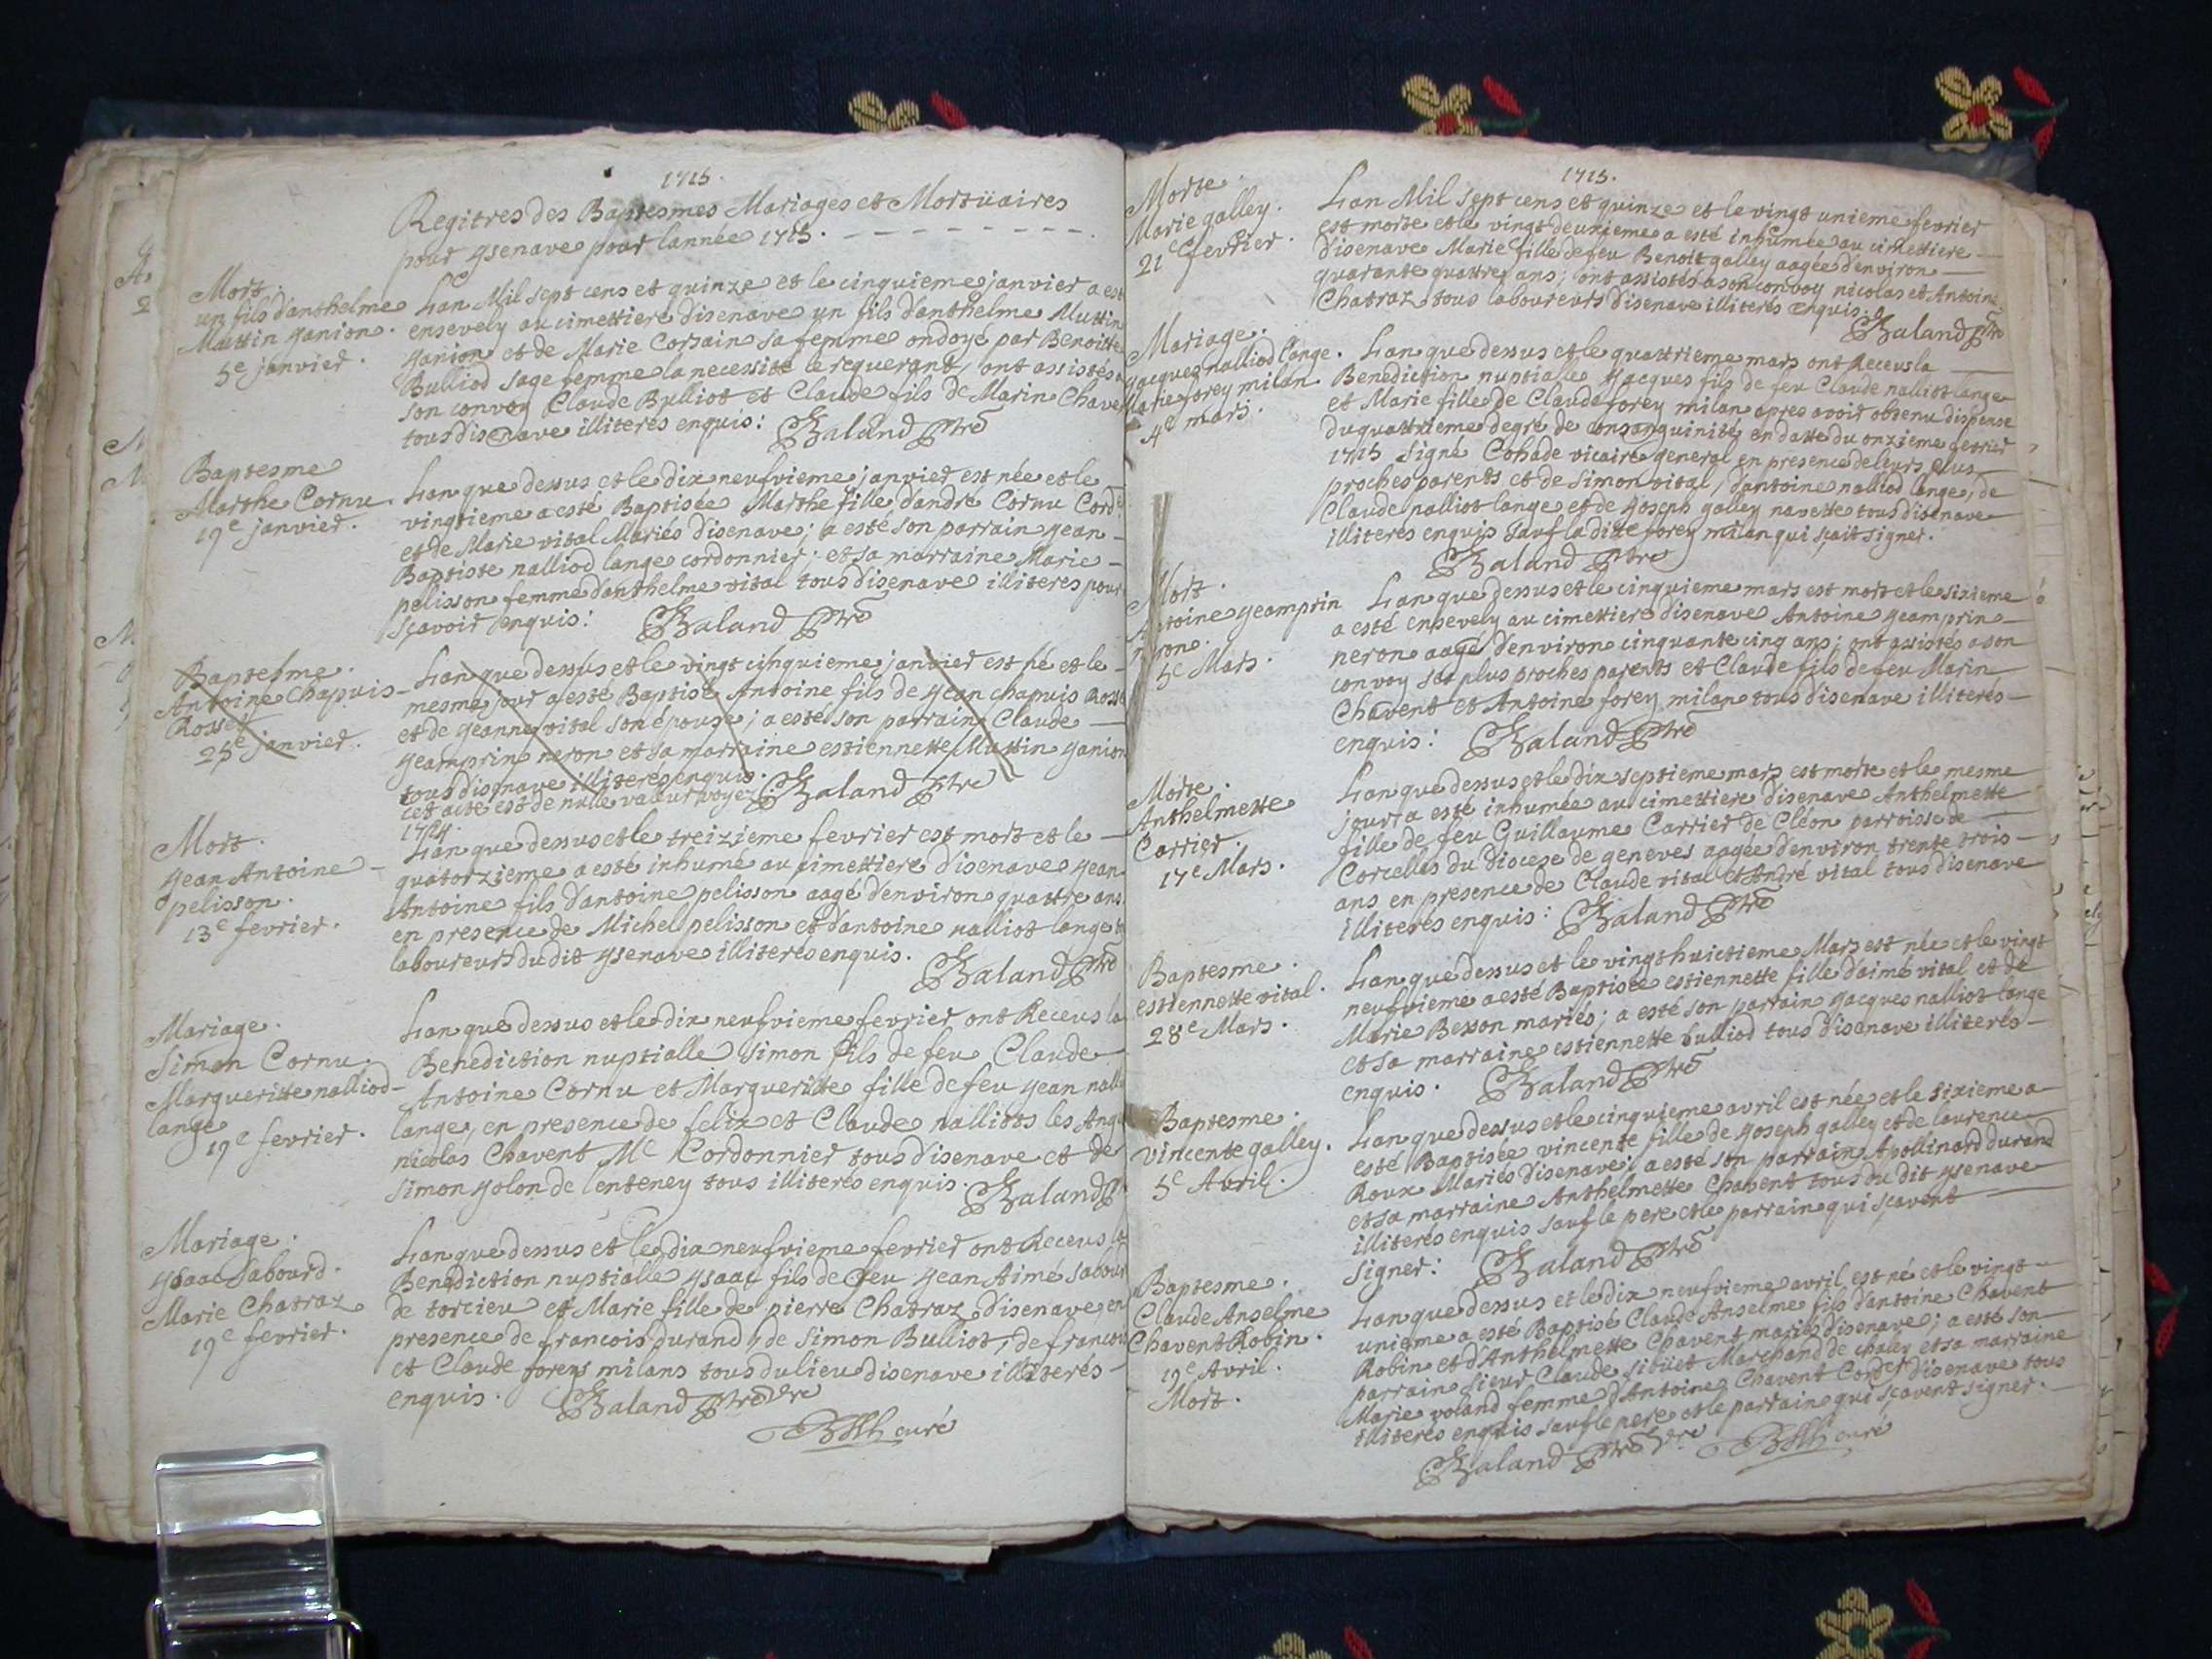 1715.
Regitres des Baptesmes Mariages et Mortüaires
pour ysenave pour lannée 1715.
Mort.
un fils d'anthelme
Muttin yanion.
5e janvier.
Lan Mil sept cens et quinze et le cinquieme janvier a est
ensevely au cimettiere disenave un fils d'anthelme Muttin
yanion et de Marie Corsain sa femme ondoyé par Benoitte
Bulliod sage femme la necessité le requerant, ont assistés a
son convoy Claude Bulliot et Claude fils de Marin Chavent
tous disenave illiterés enquis: Baland Ptre
Baptesme
Marthe Cornu
19e janvier.
Lan que dessus et le dix neufvieme janvier est née et le
vingtieme a esté Baptisée Marthe fille d'andré Cornu Cordr
et de Marie vital Mariés disenave; a esté son parrain yean
Baptiste nalliod lange cordonnier; et sa marraine Marie
pelisson femme d'anthelme vital tous disenave illiterés pour
scavoir enquis: Baland Ptre
Baptesme.
Antoine Chapuis
Rosset
25e janvier.
Lan que dessus et le vingt cinquieme janvier est né et le
mesme jour a esté Baptisé Antoine fils de yean chapuis Rosse
et de yeanne vital son épouse; a esté son parrain Claude
yeamprin neron et sa marraine estiennette Muttin yanion
tous disenave illiterés enquis. Baland Ptre
cet acte est de nulle valeur voyez
1714.
Mort.
yean Antoine
pelisson.
13e fevrier.
Lan que dessus et le treizieme fevrier est mort et le
quatorzieme a esté inhumé au cimettiere disenave yean
Antoine fils d'antoine pelisson aagé d'environ quattre ans
en presence de Michel pelisson et d'antoine nalliot lange ts
laboureurs dudit ysenave illiterés enquis.
Baland Ptre
Mariage.
Simon Cornu.
Margueritte nalliod
lange
19e fevrier.
Lan que dessus et le dix neufvieme fevrier ont Receus la
Benediction nuptialle Simon fils de feu Claude
Antoine Cornu et Margueritte fille de feu yean nalli
lange, en presence de felix et Claude nalliots les Ange
nicolas Chavent Me Cordonnier tous disenave et de
Simon yolon de lenteney tous illiterés enquis.
Baland P
Mariage.
ysaac Sabourd.
Marie Chatraz
19e fevrier.
Lan que dessus et le dix neufvieme fevrier ont Receus la
Benediction nuptialle ysaac fils de feu yean Aimé Sabour
de torcieu et Marie fille de pierre Chatraz disenave, en
presence de francois durand, de Simon Bulliot, de francois
et Claude foreys milans tous du lieu disenave illiterés
enquis. Baland Ptre vre
curé
1715.
Morte.
Marie galley.
21e fevrier.
Lan Mil sept cens et quinze et le vingt unieme fevrier
est morte et le vingt deuxieme a esté inhumée au cimettiere
disenave Marie fille de feu Benoit galley aagée d'environ
quarante quattre ans; ont assistés a son convoy nicolas et Antoine
Chatraz tous laboureurs disenave illiterés enquis.
Baland Ptre
Mariage.
yacques nalliod lange.
Marie forey milan
4e mars.
Lan que dessus et le quattrieme mars ont Receus la
Benediction nuptialle yacques fils de feu Claude nalliot lange
et Marie fille de Claude forey milan apres avoir obtenu dispense
du quattrieme degré de consanguinité, en datte du onzieme fevrier
1715 signé Cohade vicaire general en presence de leurs plus
proches parents et de Simon vital, d'antoine nalliod lange, de
Claude nalliot lange et de yoseph galley navette tous disenave
illiterés enquis sauf la dite forey milan qui sçait signer.
Baland Ptre
Mort.
Antoine yeamprin
neron.
5e Mars.
Lan que dessus et le cinquieme mars est mort et le sixieme
a esté ensevely au cimettiere disenave Antoine yeamprin
neron aagé d'environ cinquante cinq ans; ont assistés a son
convoy ses plus proches parents et Claude fils de feu Marin
Chavent et Antoine forey milan tous disenave illiterés
enquis: Baland Ptre
Morte.
Anthelmette
Carrier.
17e Mars.
Lan que dessus et le dix septieme mars est morte et le mesme
jour a esté inhumée au cimettiere disenave Anthelmette
fille de feu Guillaume Carrier de Cléon parroisse de
Corcelles du Diocese de geneve aagée d'environ trente trois
ans en presence de Claude vital et André vital tous disenave
illiterés enquis: Baland Ptre
Baptesme.
estiennette vital.
28e Mars.
Lan que dessus et le vingt huictieme Mars est née et le vingt
neufvieme a esté Baptisée estiennette fille d'aimé vital et de
Marie Besson mariés; a esté son parrain yacques nalliot lange
et sa marraine estiennette bulliod tous disenave illiterés
enquis. Baland Ptre
Baptesme.
vincente galley.
5e Avril.
Lan que dessus et le cinquieme avril est née et le sixieme a
esté Baptisée vincente fille de yoseph galley et de laurence
Roux Mariés disenave; a esté son parrain Apollinard durand
et sa marraine Anthelmette Chavent tous du dit ysenave
illiterés enquis sauf le pere et le parrain qui sçavent
signer: Baland Ptre
Baptesme.
Claude Anselme
Chavent Robin.
19e Avril.
Mort.
Lan que dessus et le dix neufvieme avril est né et le vingt
unieme a esté Baptisé Claude Anselme fils d'antoine Chavent
Robin et d'Anthelmette Chavent mariés disenave; a esté son
parrain sieur Claude sibuet Marchand de chaley et sa marraine
Marie voland femme d'Antoine Chavent Cordr disenave tous
illiterés enquis sauf le pere et le parrain qui sçavent signer.
Baland Ptre vre curé